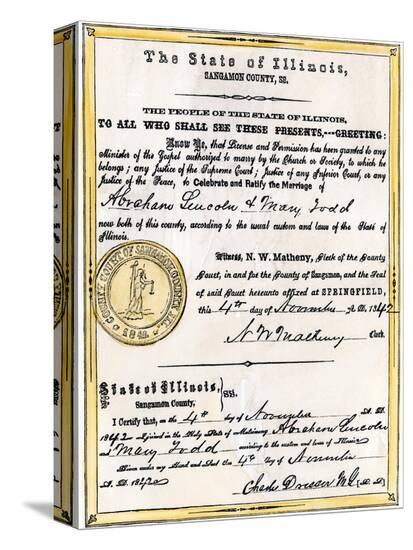 The State of Illinois,
SANGAMON COUNTY, SS.
THE PEOPLE OF THE STATE OF ILLINOIS,
TO ALL WHO SHALL SEE THESE PRESENTS,---GREETING:
Know Ye, that License and Permission has been granted to any
Minister of the Gospel authorized to marry by the Church or Society, to which he
belongs; any Justice of the Supreme Court; Justice of any Inferior Court, or any
Justice of the Peace, to Celebrate and Ratify the Marriage of
Abraham Lincoln & Mary Todd
now both of this county, according to the usual custom and laws of the State of
Illinois.
Witness, N. W. Matheny, Clerk of the County
Court, in and for the County of Sangamon, and the Seal
of said Court hereunto affixed at SPRINGFIELD,
this 4th day of November A. D. 1842
N W Matheny Clerk.
COUNTY COURT OF SANGAMON COUNTY ILL.
State of Illinois, SS.
Sangamon County,
I Certify that, on the 4th day of November A. D.
1842 I joined in the Holy State of Matrimony Abraham Lincoln
and Mary Todd according to the custom and laws of Illinois
Given under my Hand and Seal this 4th day of November
A. D. 1842
Charles Dresser